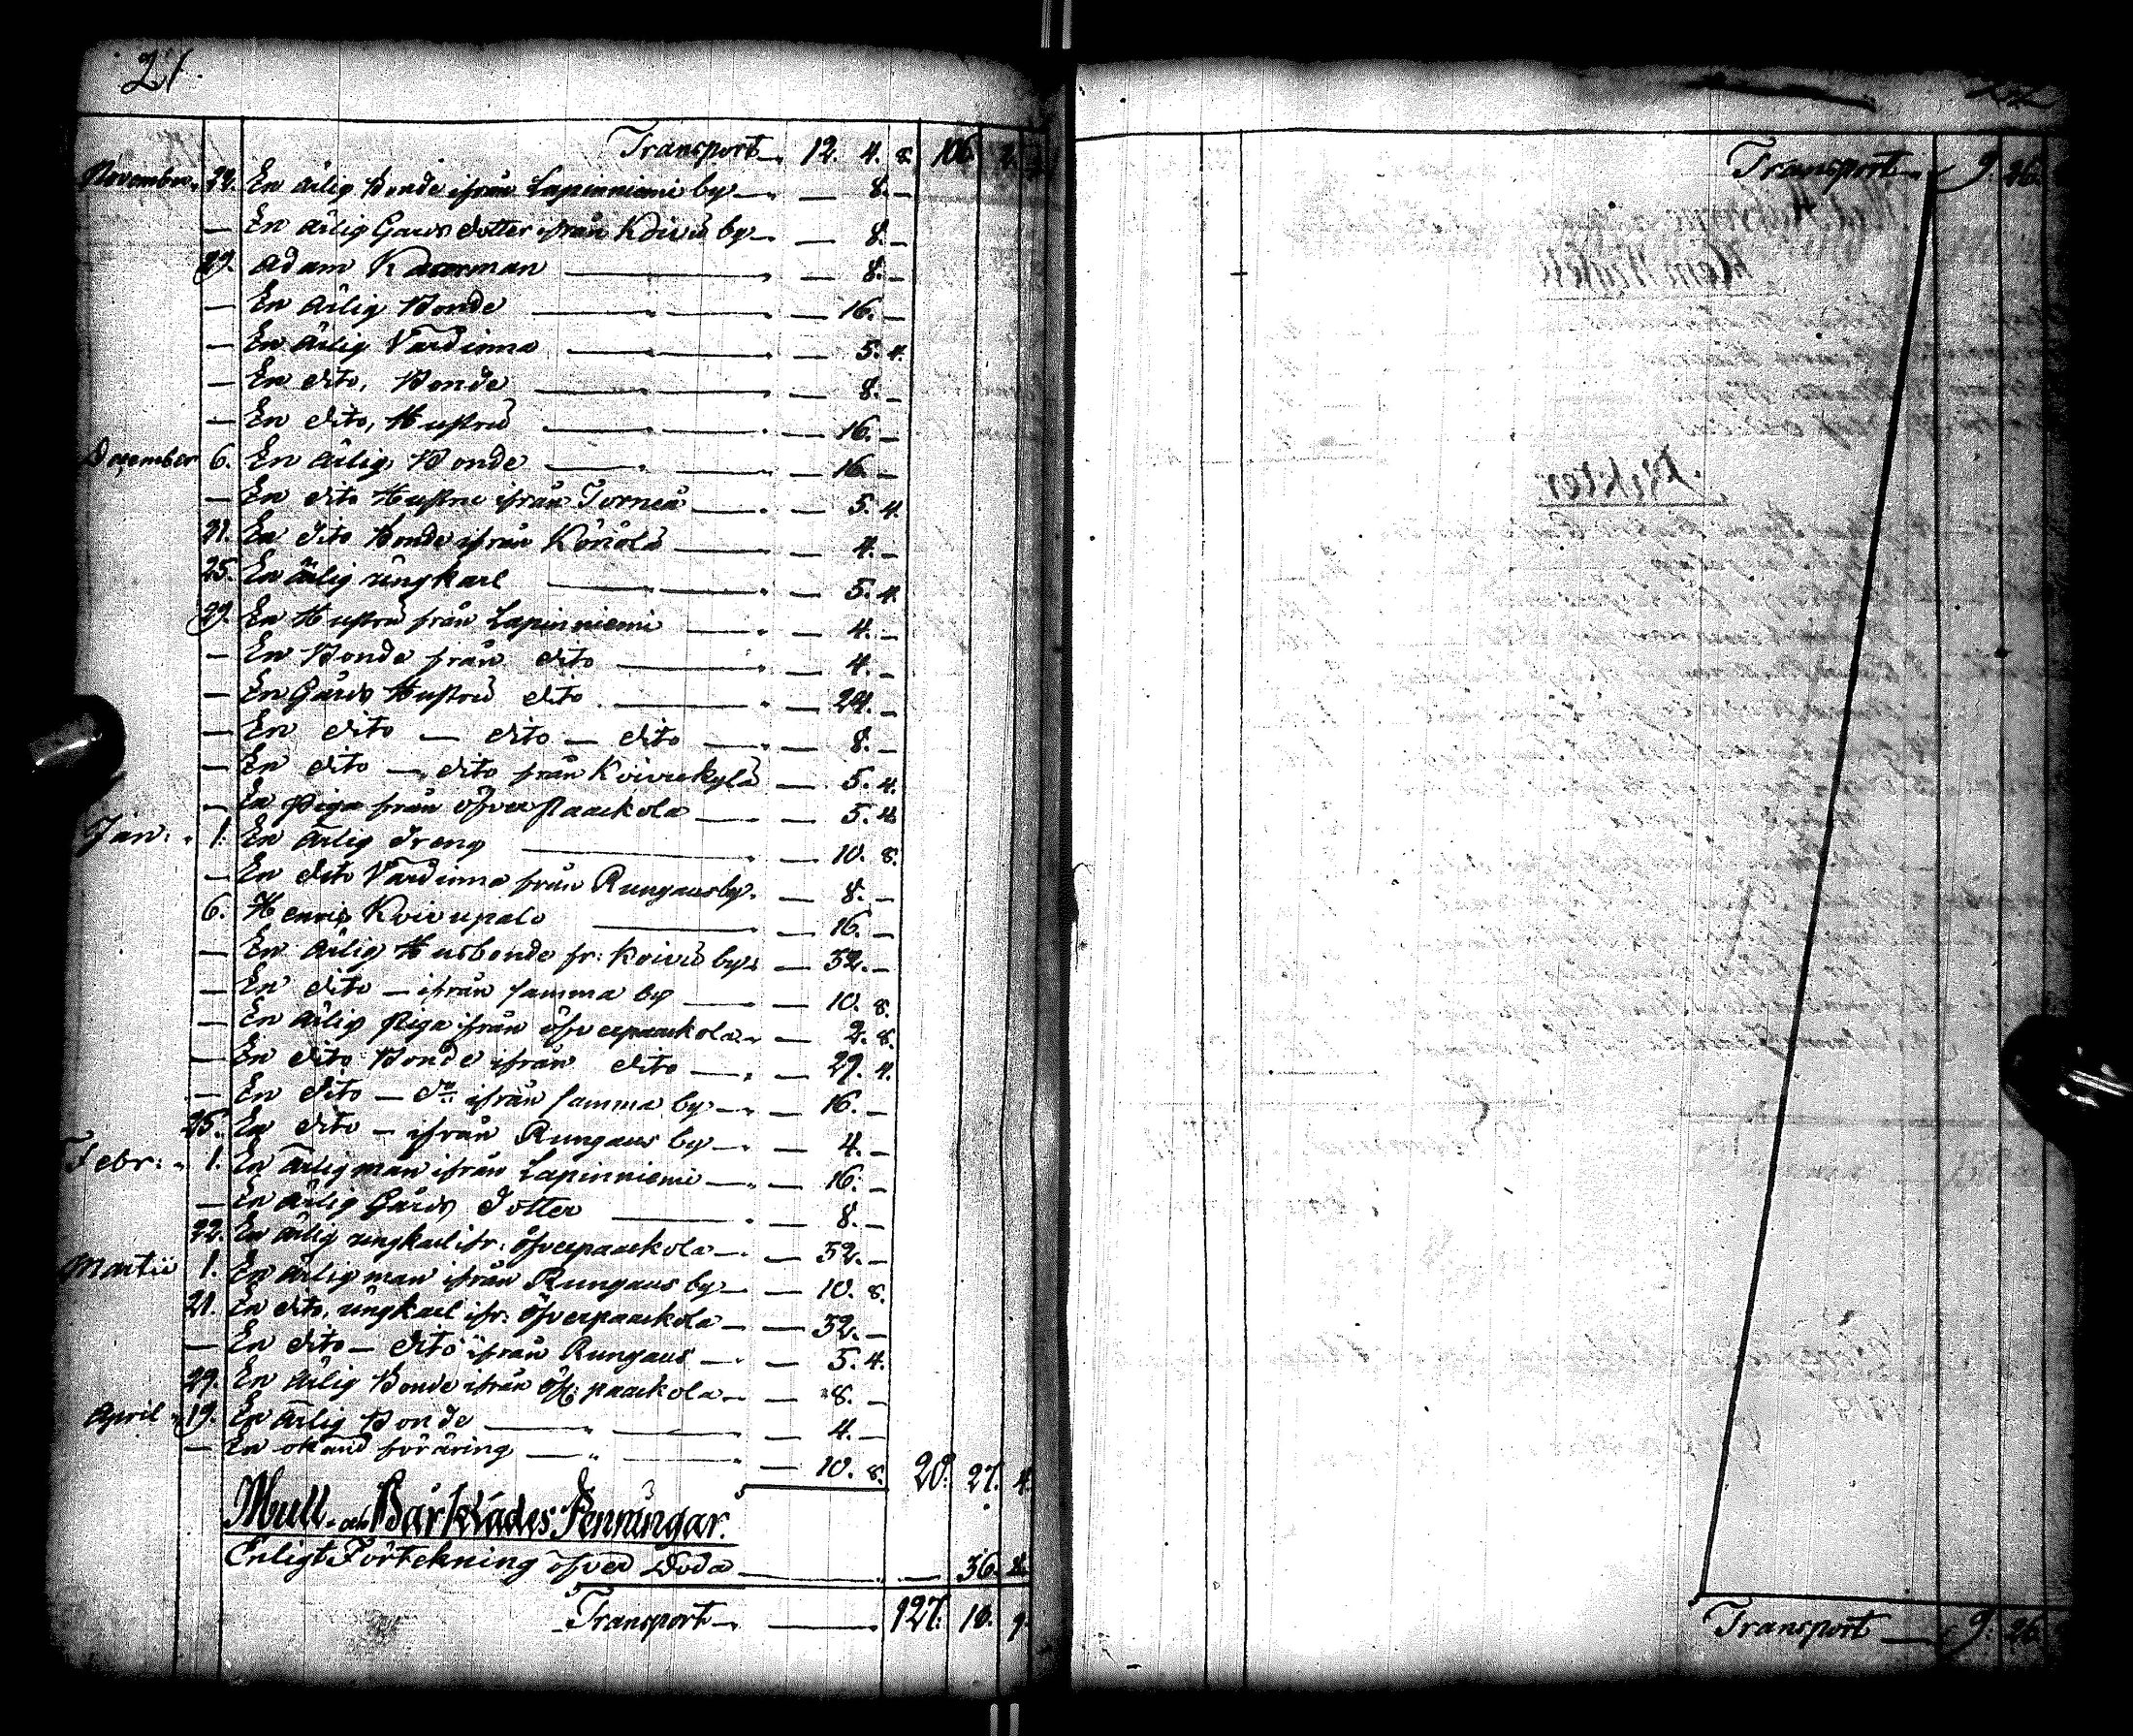 21.
Transport 12. 4. 8. 106. 2.
November 22. En ärlig Bonde ifrån Lapinniemi by — 8. —
— En ärlig Gårds dotter ifrån Koivu by — 8. —
29. Adam — 8. —
— En ärlig Bonde — 16. —
— En ärlig Värdinna — 5. 4.
— En dito, Bonde — 8. —
— En dito, Hustru — 16. —
December 6. En ärlig Bonde — 16. —
— En dito Hustru ifrån Torneå — 5. 4.
21. En dito Bonde ifrån Könölä — 4. —
25. En ärlig ungkarl — 5. 4.
29. En Hustru från Lapinniemi — 4. —
— En Bonde från dito — 4. —
— En Gårds Hustru dito — 24. —
— En dito — dito — dito — 8. —
— En dito — dito från Koivukylä — 5. 4.
— En Piga från öfverpaackola — 5. 4.
Jan: 1. En ärlig dreng — 10. 8.
— En dito Värdinna från Rungaus by — 8. —
6. Henric Koivupalo — 16. —
— En ärlig Husbonde fr: Koivu by — 32. —
— En dito — ifrån samma by — 10. 8.
— En ärlig Piga ifrån öfverpaackola — 2. 8.
— En dito Bonde ifrån dito — 29. 4.
— En dito — do ifrån samma by — 16. —
25. En dito — ifrån Rungaus by — 4. —
Febr: 1. En ärlig man ifrån Lapinniemi — 16. —
— En ärlig Gårds Dotter — 8. —
22. En ärlig ungkarl ifr: öfverpaackola — 32. —
Martii 1. En ärlig man ifrån Rungaus by — 10. 8.
21. En dito, ungkarl ifr: öfverpaackola — 32. —
— En dito — dito ifrån Rungaus — 5. 4.
29. En ärlig Bonde ifrån öfv: paackola — 8. —
April 19. En ärlig Bonde — 4. —
— En okänd föräring — 10. 8. 20. 27. 4.
Mull- och Bårklädes Penningar.
Enligt Förtekning öfver Döda — 36. 8.
Transport — 127. 18. 9.
22
Transport 9. 26.
Transport — 9. 26.